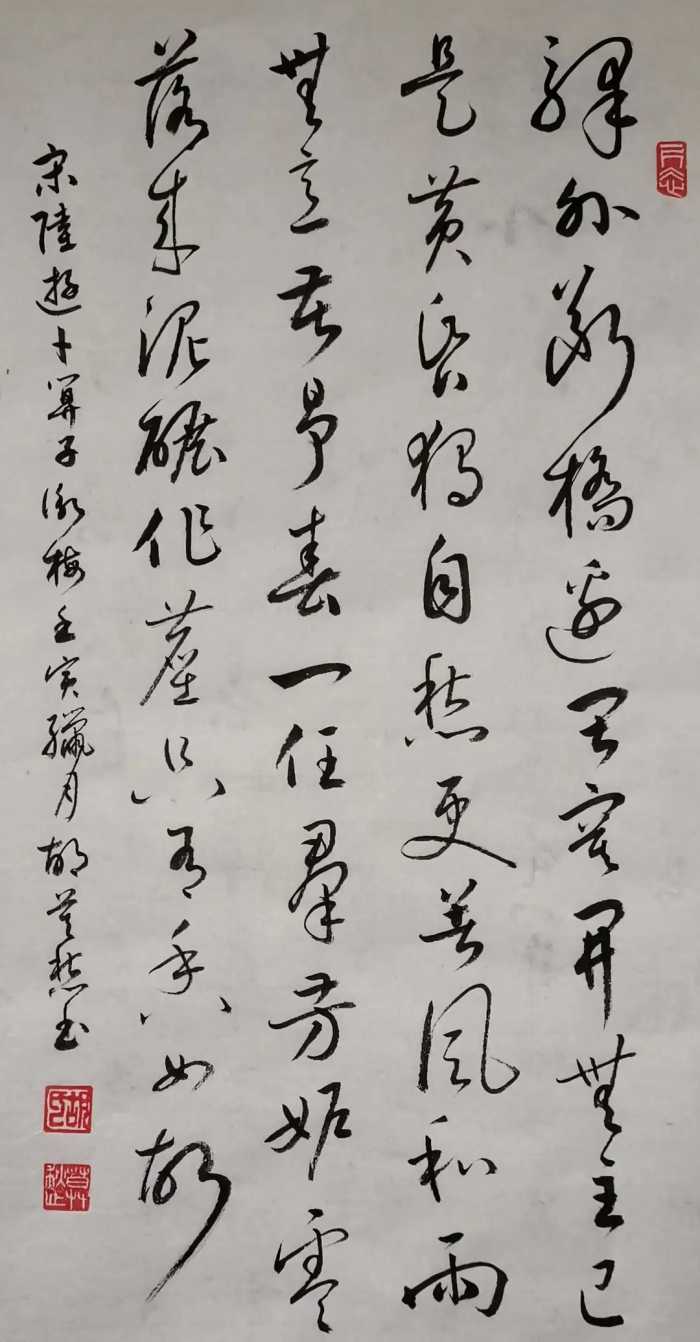 驛外斷橋邊寂寞開無主已
是黄昏獨自愁更著風和雨
無意苦爭春一任羣芳妒零
落成泥碾作塵只有香如故
宋陸游卜算子詠梅壬寅臘月胡愁書